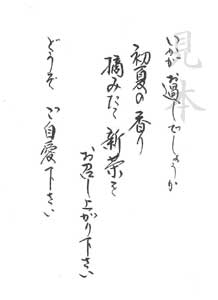 見本
いかがお過しでしょうか
初夏の香り
摘みたて新茶を
お召し上がり下さい
どうぞ ご自愛下さい